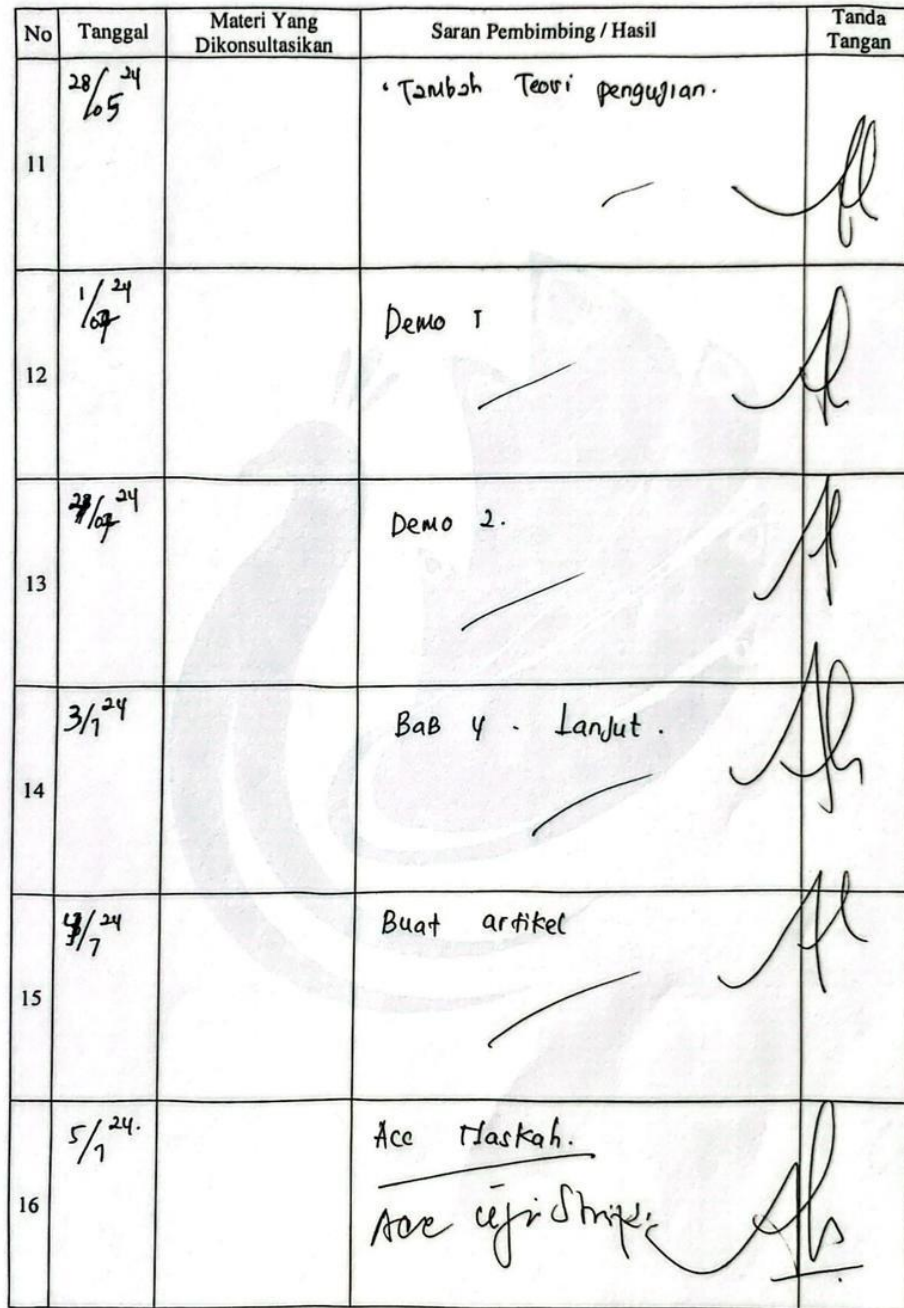 No Tanggal Materi Yang Dikonsultasikan Saran Pembimbing / Hasil Tanda Tangan
11 28/05 24 Tambah Teori pengujian.
12 1/07 24 Demo 1
13 /07 24 Demo 2.
14 3/7 24 BaB 4 - Lanjut.
15 /7 24 Buat artikel
16 5/7 24. Acc Naskah.
Acc uji Skripsi